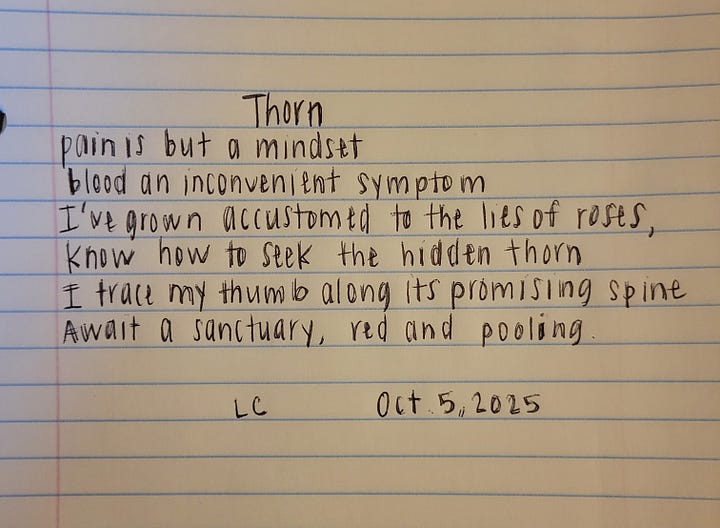 Thorn
pain is but a mindset
blood an inconvenient symptom
I've grown accustomed to the lies of roses,
know how to seek the hidden thorn
I trace my thumb along its promising spine
Await a sanctuary, red and pooling.
LC Oct. 5, 2025